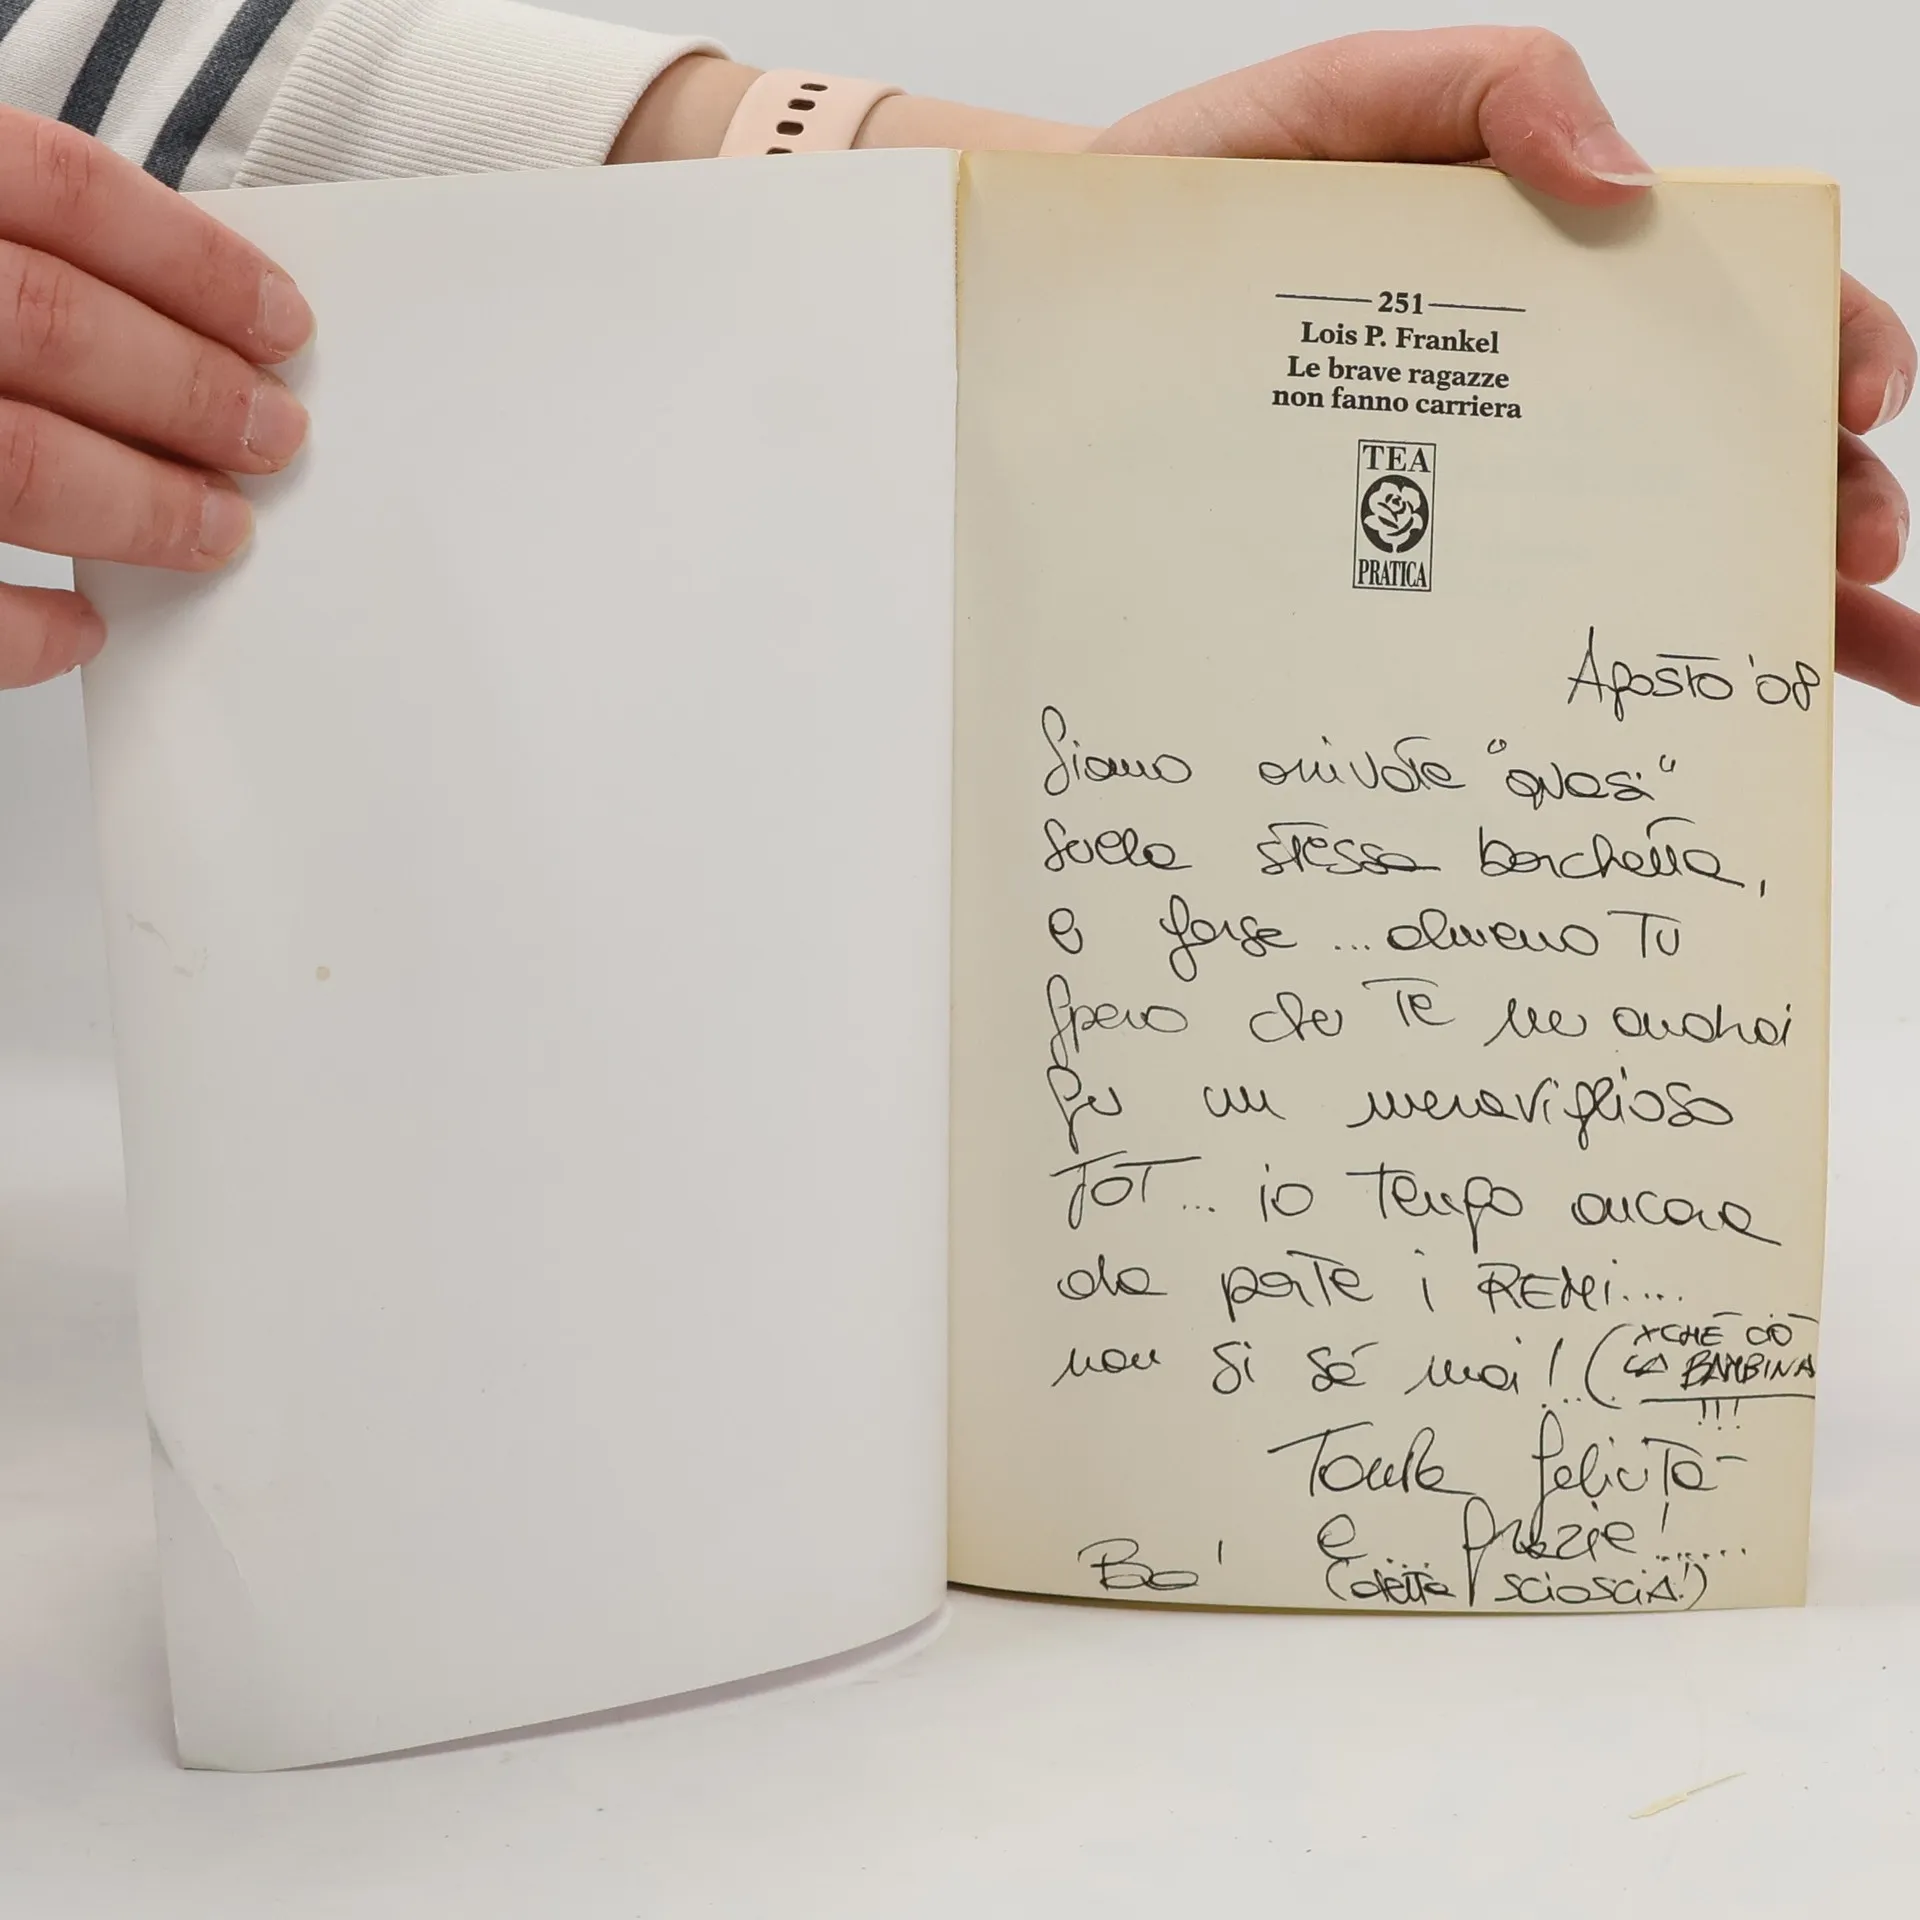 251
Lois P. Frankel
Le brave ragazze
non fanno carriera
TEA
PRATICA
Agosto '08
Siamo arrivate "quasi"
sulla stessa barchetta,
e forse ... almeno TU
spero che Te ne andrai
per un meraviglioso
TOT ... io Tengo ancora
da parte i REMI....
non si sé mai!... (XCHÉ CIÒ
LA BAMBINA
!!!
Tanta felicità
e grazie!......
Ba' (detta SCIOSCIA!)